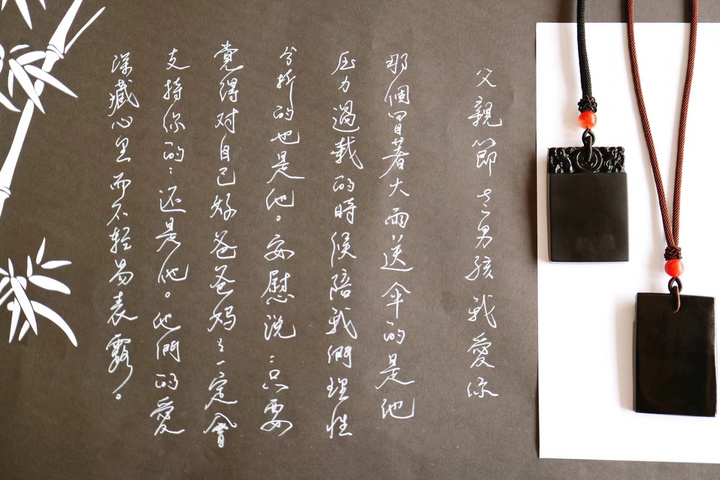 父親節老男孩我愛你
那個冒著大雨送傘的是他
压力過載的時候陪我們理性
分析的也是他。安慰說:只要
覺得对自己好爸爸妈々一定會
支持你的:还是他。他們的愛
深藏心里而不轻易表露。